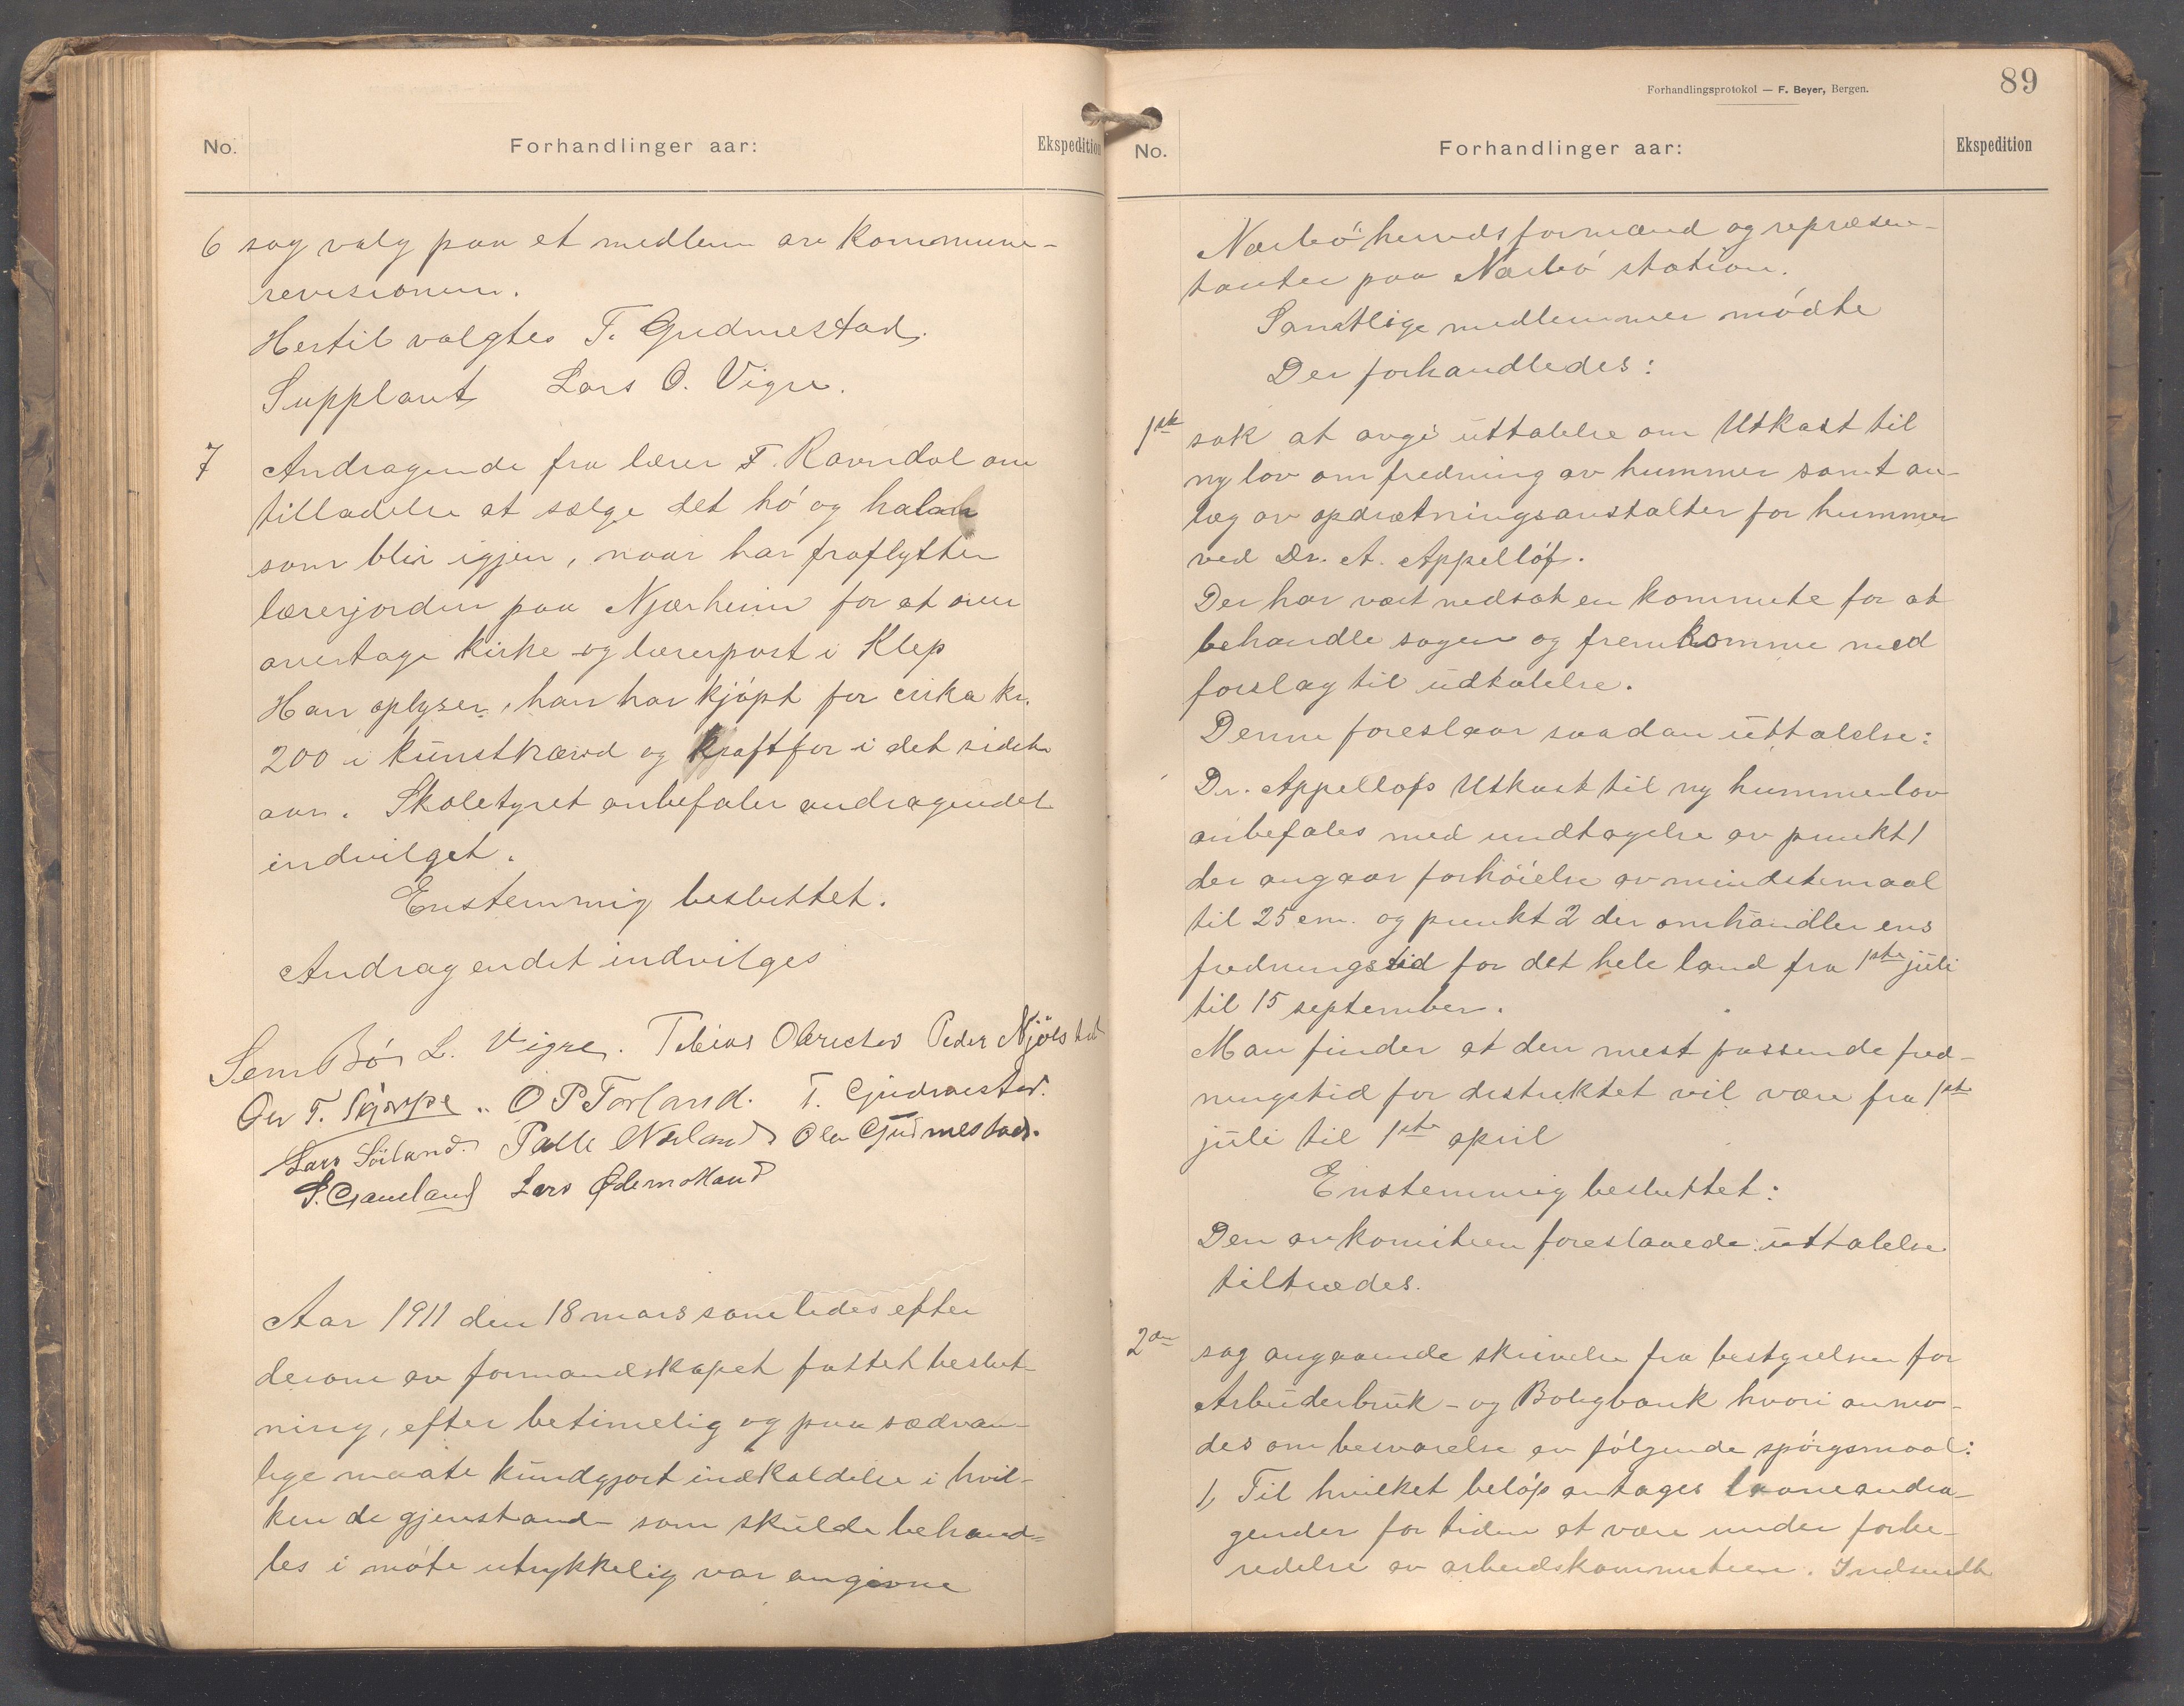 No.
Forhandlinger aar:
Ekspedition
6 sag valg paa et medlem av kommune-
revisionen.
Hertil valgtes T. Gudmestad.
Supplant Lars O. Vigre.
7 Andragende fra lærer F. Ravndal om
tilladelse at sælge det hö og halm
som blir igjen, naar har fraflytter
lærerjorden paa Njærheim for at
overtage kirke og lærerpost i Klep
Han oplyser, han har kjöpt for cirka kr.
200 i kunstkrævd og kraftfor i det sidste
aar. Skolestyret anbefaler andragendet
indvilget.
Enstemmig besluttet.
Andragendet indvilges
Sem Bö L. Vigre. Tobias Obrestad Peder Njölstad
O P Torland. T. Gudmestad.
Lars Söiland. Palle Nærland Ola Gudmestad.
S. Gameland Lars Ødemotland
Aar 1911 den 18 mars samledes efter
derom av formandskapet fattet beslut-
ning, efter betimelig og paa sædvan-
lige maate kundgjort indkaldelse i hvil-
ken de gjenstande som skulde behand-
les i möte utrykkelig var angivne
Forhandlingsprotokol — F. Beyer, Bergen.
89
No.
Forhandlinger aar:
Ekspedition
Nærbö herredsformænd og repræsen-
tanter paa Nærbö station.
Samtlige medlemmer mödte
Der forhandledes:
1ste sak at avgi uttalelse om Utkast til
ny lov om fredning av hummer samt an-
læg av opdrætningsanstalter for hummer
ved Dr. A. Appellöf.
Der har vært nedsat en kommite for at
behandle sagen og fremkomme med
forslag til udtalelse.
Denne foreslaar saadan uttalelse:
Dr. Appellofs Utkast til ny hummerlov
anbefales med undtagelse av punkt 1
der angaar forhöielse av mindstemaal
til 25 cm. og punkt 2 der omhandler ens
fredningstid for det hele land fra 1ste juli
til 15 september.
Man finder at den mest passende fred-
ningstid for distriktet vil være fra 1ste
juli til 1ste april
Enstemmig besluttet:
Den av komiteen foreslaaede uttalelse
tiltrædes.
2den sag angaaende skrivelse fra bestyrelsen for
Arbeiderbruk- og Boligbank hvori anmo-
des om besvarelse av fölgende spörgsmaal:
1, Til hvilket belöp antages laaneandra-
gender for tiden at være under forbe-
redelse av arbeidskommiteen. Indsendte